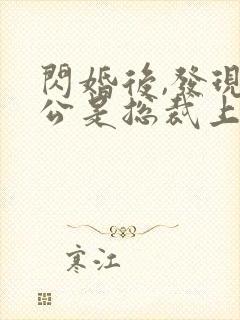 閃婚後,發現
公是總裁上
寒江